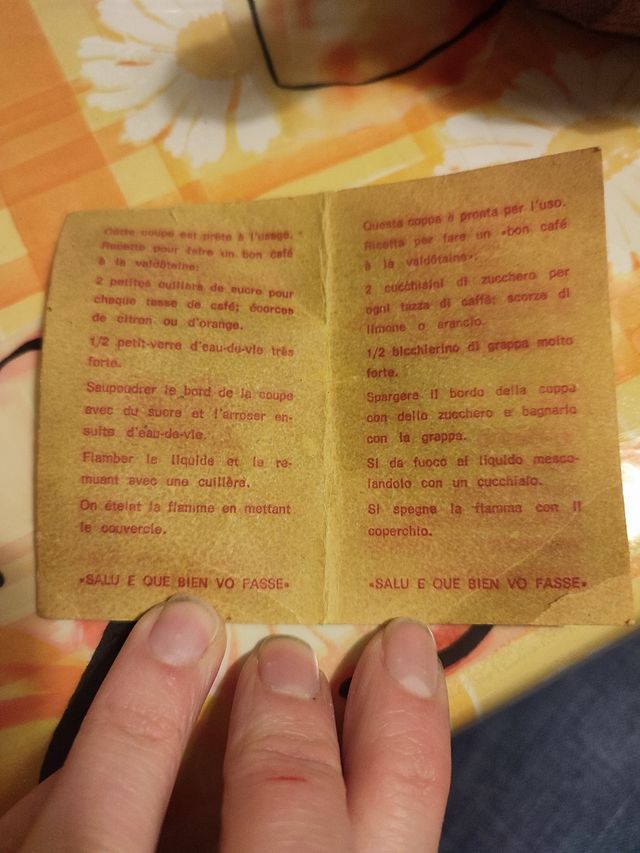 Cette coupe est prête à l'usage.
Recette pour faire un bon café
à la valdôtaine:
2 petites cuillère de sucre pour
chaque tasse de café; écorces
de citron ou d'orange.
1/2 petit-verre d'eau-de-vie très
forte.
Saupoudrer le bord de la coupe
avec du sucre et l'arroser en-
suite d'eau-de-vie.
Flamber le liquide et le re-
muant avec une cuillère.
On éteint la flamme en mettant
le couvercle.
«SALU E QUE BIEN VO FASSE»
Questa coppa è pronta per l'uso.
Ricetta per fare un «bon café
à la valdôtaine».
2 cucchiaini di zucchero per
ogni tazza di caffè; scorze di
limone o arancio.
1/2 bicchierino di grappa molto
forte.
Spargere il bordo della coppa
con dello zucchero e bagnarlo
con la grappa.
Si da fuoco al liquido mesco-
landolo con un cucchiaio.
Si spegne la fiamma con il
coperchio.
«SALU E QUE BIEN VO FASSE»